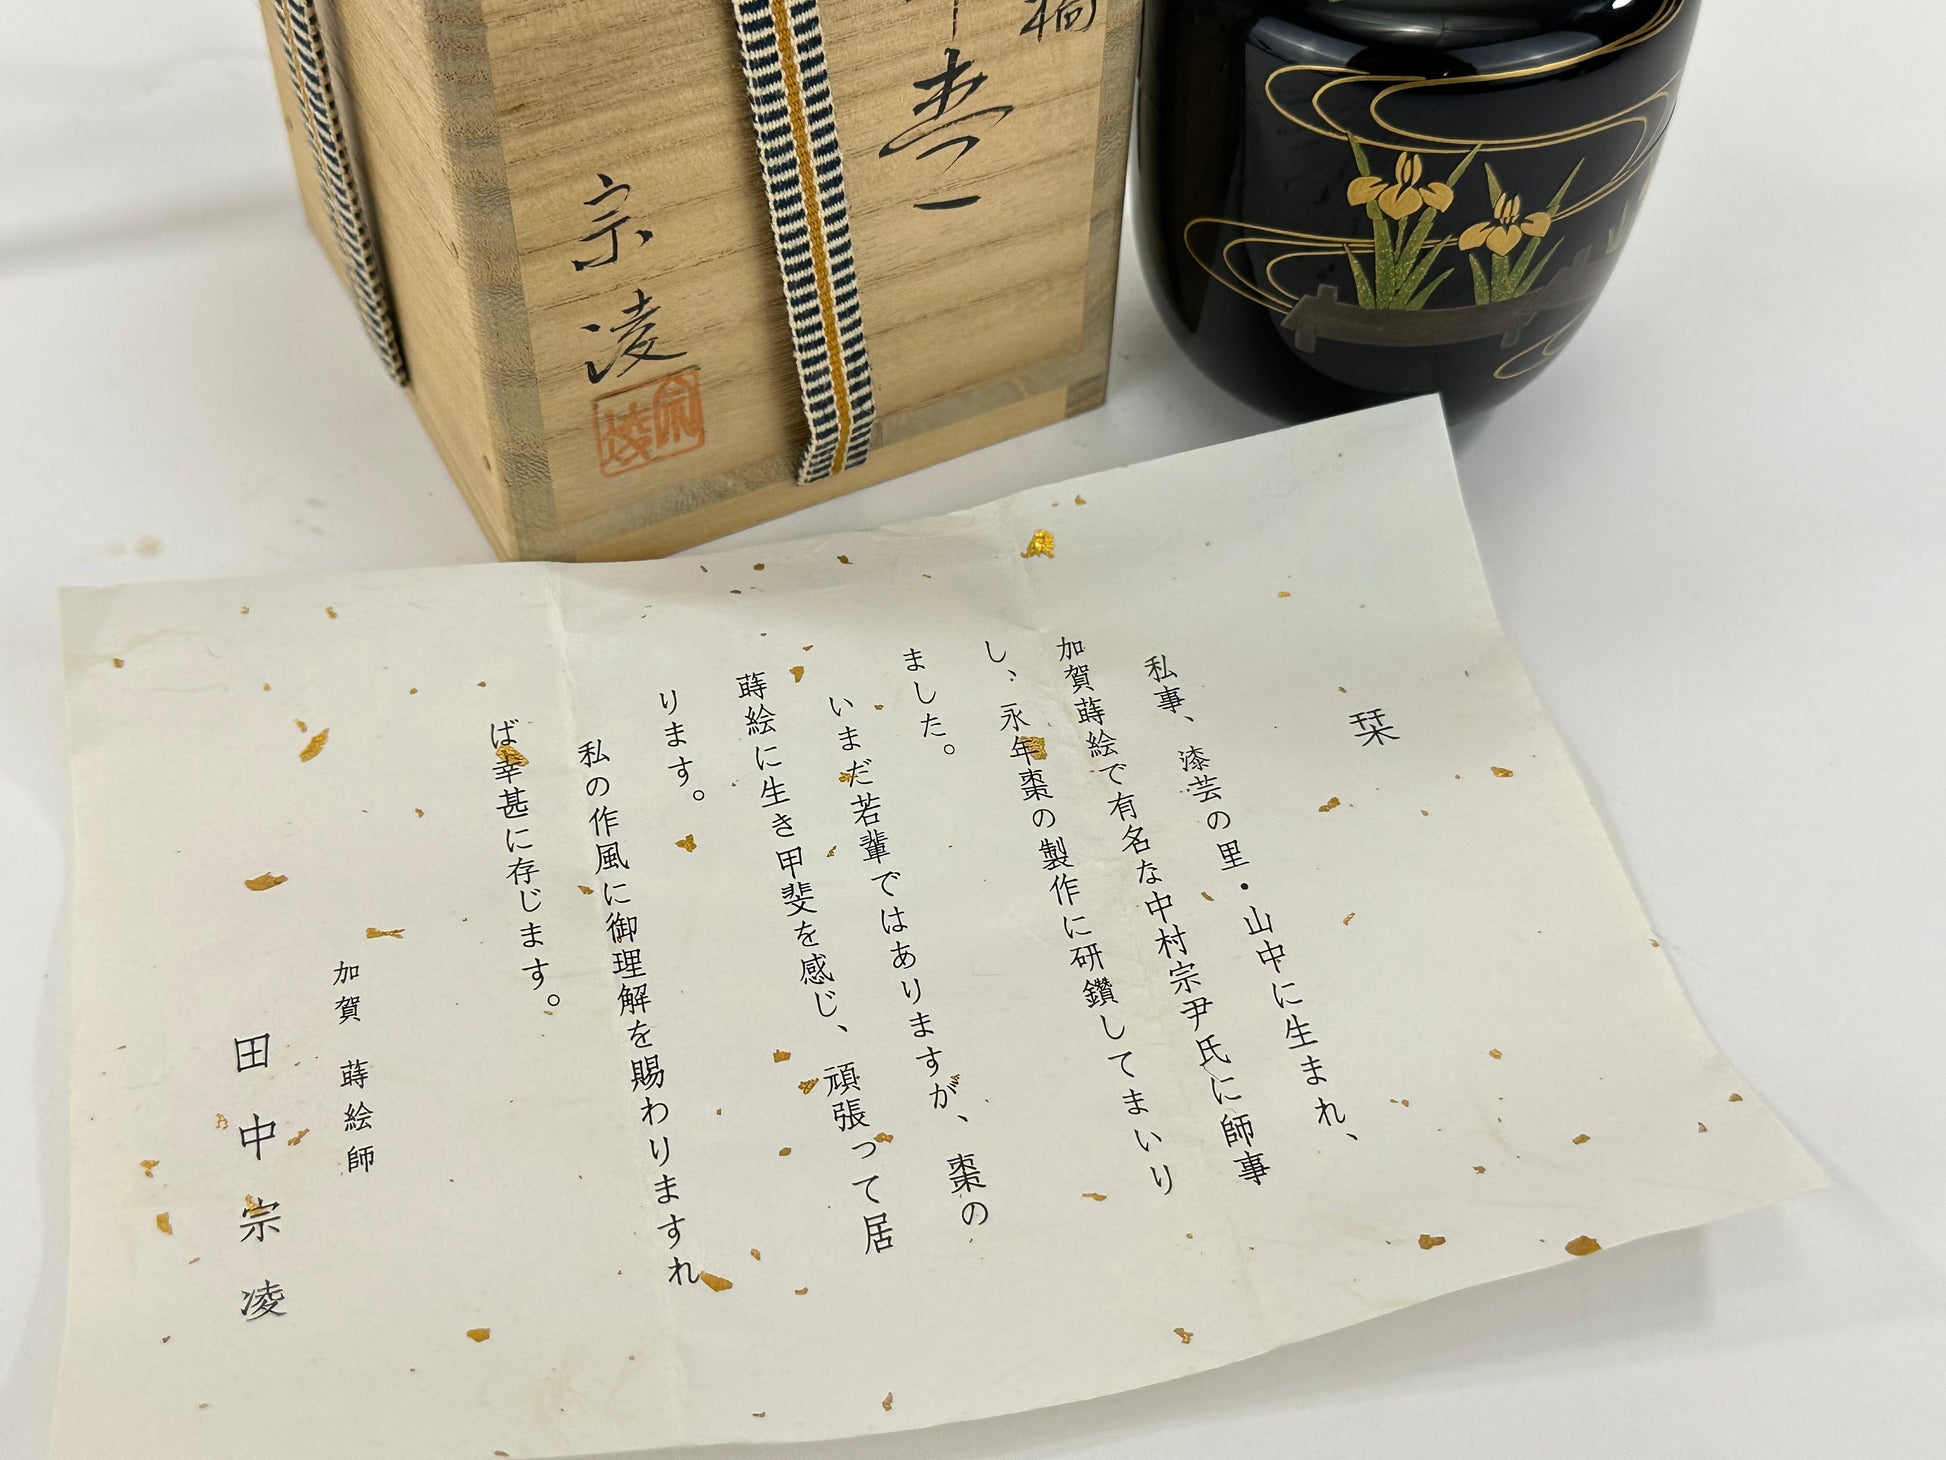 宗凌
宗凌
栞
私事、漆芸の里・山中に生まれ、
加賀蒔絵で有名な中村宗尹氏に師事
し、永年棗の製作に研鑽してまいり
ました。
いまだ若輩ではありますが、棗の
蒔絵に生き甲斐を感じ、頑張って居
ります。
私の作風に御理解を賜わりますれ
ば幸甚に存じます。
加賀 蒔絵師
田中宗凌